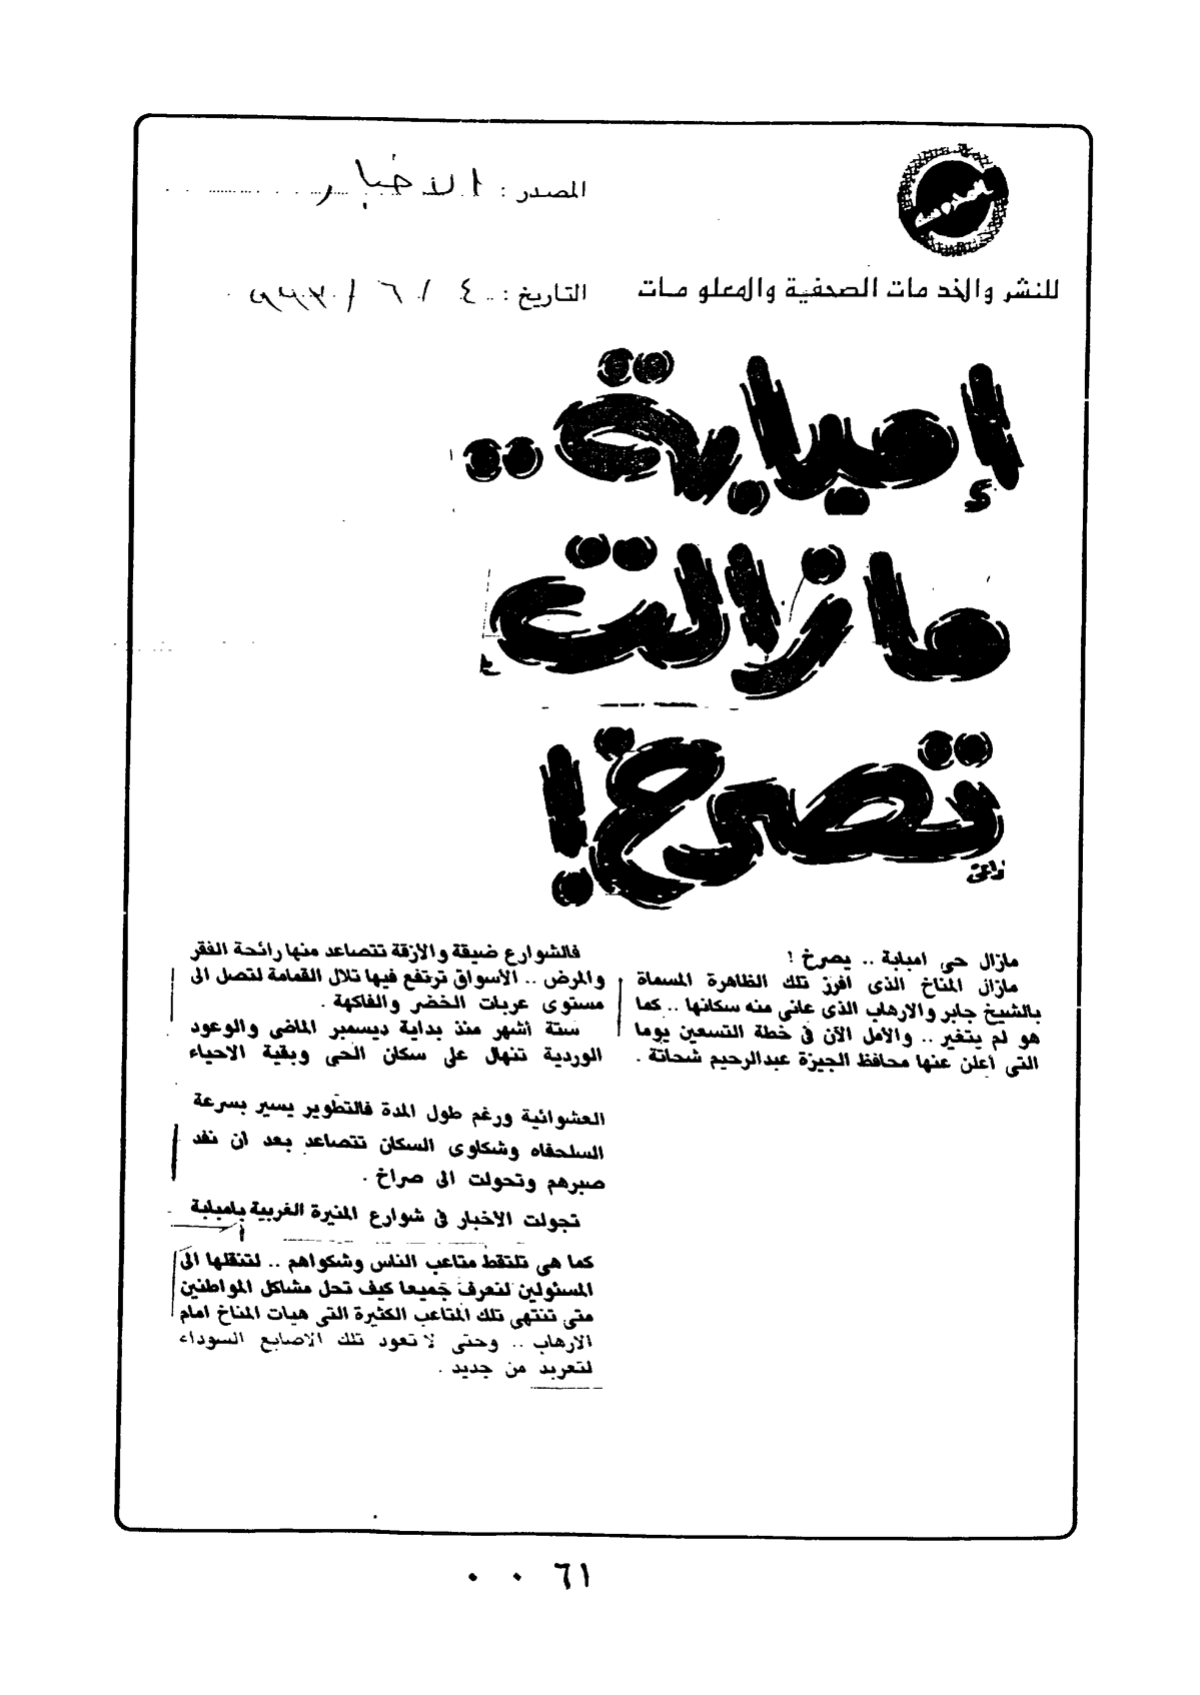 المصدر : الأخبار
للنشر والخدمات الصحفية والمعلومات
التاريخ : ٤ / ٦ /
إمبابة ..
مازالت
تصرخ !
مازال حى امبابة .. يصرخ !
مازال المناخ الذى أفرز تلك الظاهرة المسماة
بالشيخ جابر والارهاب الذى عانى منه سكانها .. كما
هو لم يتغير .. والأمل الآن فى خطة التسعين يوما
التى أعلن عنها محافظ الجيزة عبدالرحيم شحاتة .
فالشوارع ضيقة والازقة تتصاعد منها رائحة الفقر
والمرض .. الأسواق ترتفع فيها تلال القمامة لتصل الى
مستوى عربات الخضر والفاكهة .
ستة أشهر منذ بداية ديسمبر الماضى والوعود
الوردية تنهال على سكان الحى وبقية الاحياء
العشوائية ورغم طول المدة فالتطوير يسير بسرعة
السلحفاه وشكاوى السكان تتصاعد بعد ان نفد
صبرهم وتحولت الى صراخ .
تجولت الأخبار فى شوارع المنيرة الغربية بامبابة
كما هى تلتقط متاعب الناس وشكواهم .. لتنقلها الى
المسئولين لنعرف جميعا كيف تحل مشاكل المواطنين
متى تنتهى تلك المتاعب الكثيرة التى هيات المناخ امام
الارهاب .. وحتى لا تعود تلك الاصابع السوداء
لتعربد من جديد .
٠٠٦١